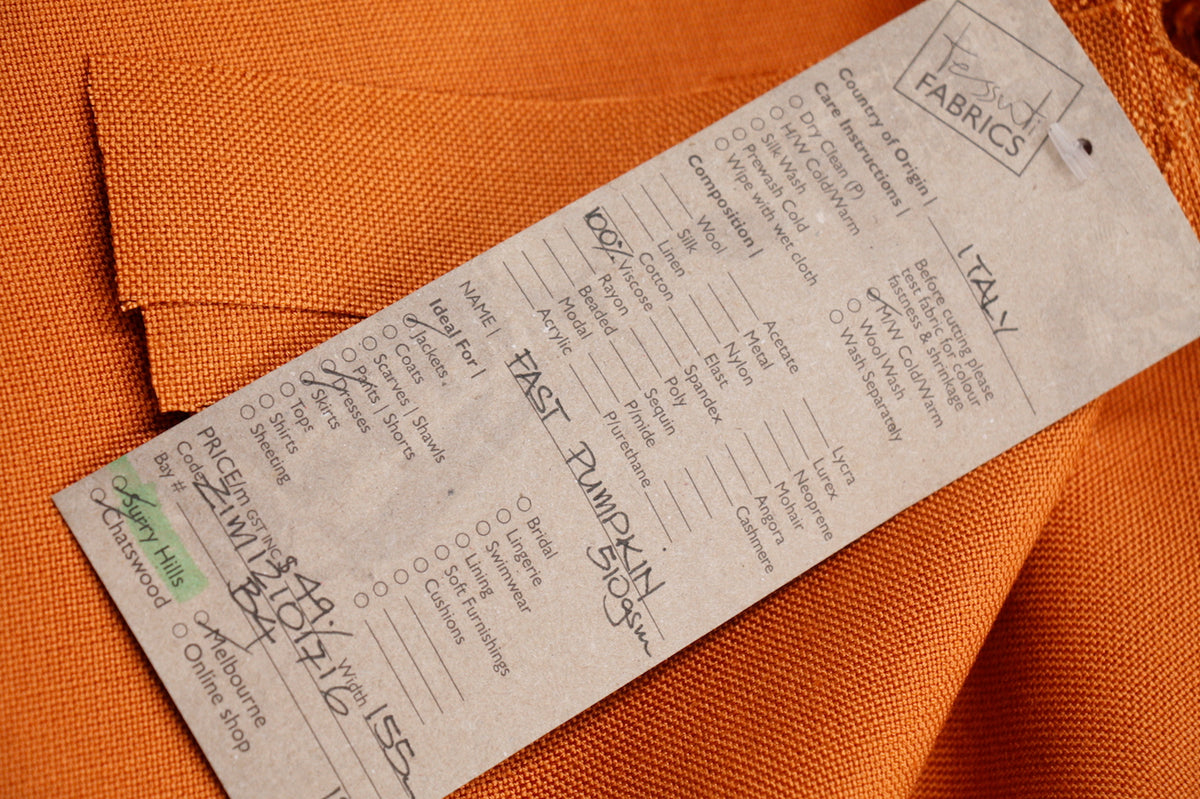 Tessuti
FABRICS
Country of Origin | ITALY
Care Instructions |
Dry Clean (P)
H/W Cold/Warm
Silk Wash
Prewash Cold
Wipe with wet cloth
Before cutting please
test fabric for colour
fastness & shrinkage
M/W Cold/Warm
Wool Wash
Wash Separately
Composition |
Wool
Silk
Linen
Cotton
100% Viscose
Rayon
Beaded
Modal
Acrylic
Acetate
Metal
Nylon
Elast
Spandex
Poly
Sequin
P/mide
P/urethane
Lycra
Lurex
Neoprene
Mohair
Angora
Cashmere
NAME | FAST PUMPKIN
510gsm
Ideal For |
Jackets
Coats
Scarves | Shawls
Pants | Shorts
Dresses
Skirts
Tops
Shirts
Sheeting
Bridal
Lingerie
Swimwear
Lining
Soft Furnishings
Cushions
PRICE/m GST INC $49./ Width 155
Code ZIM13101716
Bay # B4
Surry Hills
Chatswood
Melbourne
Online shop